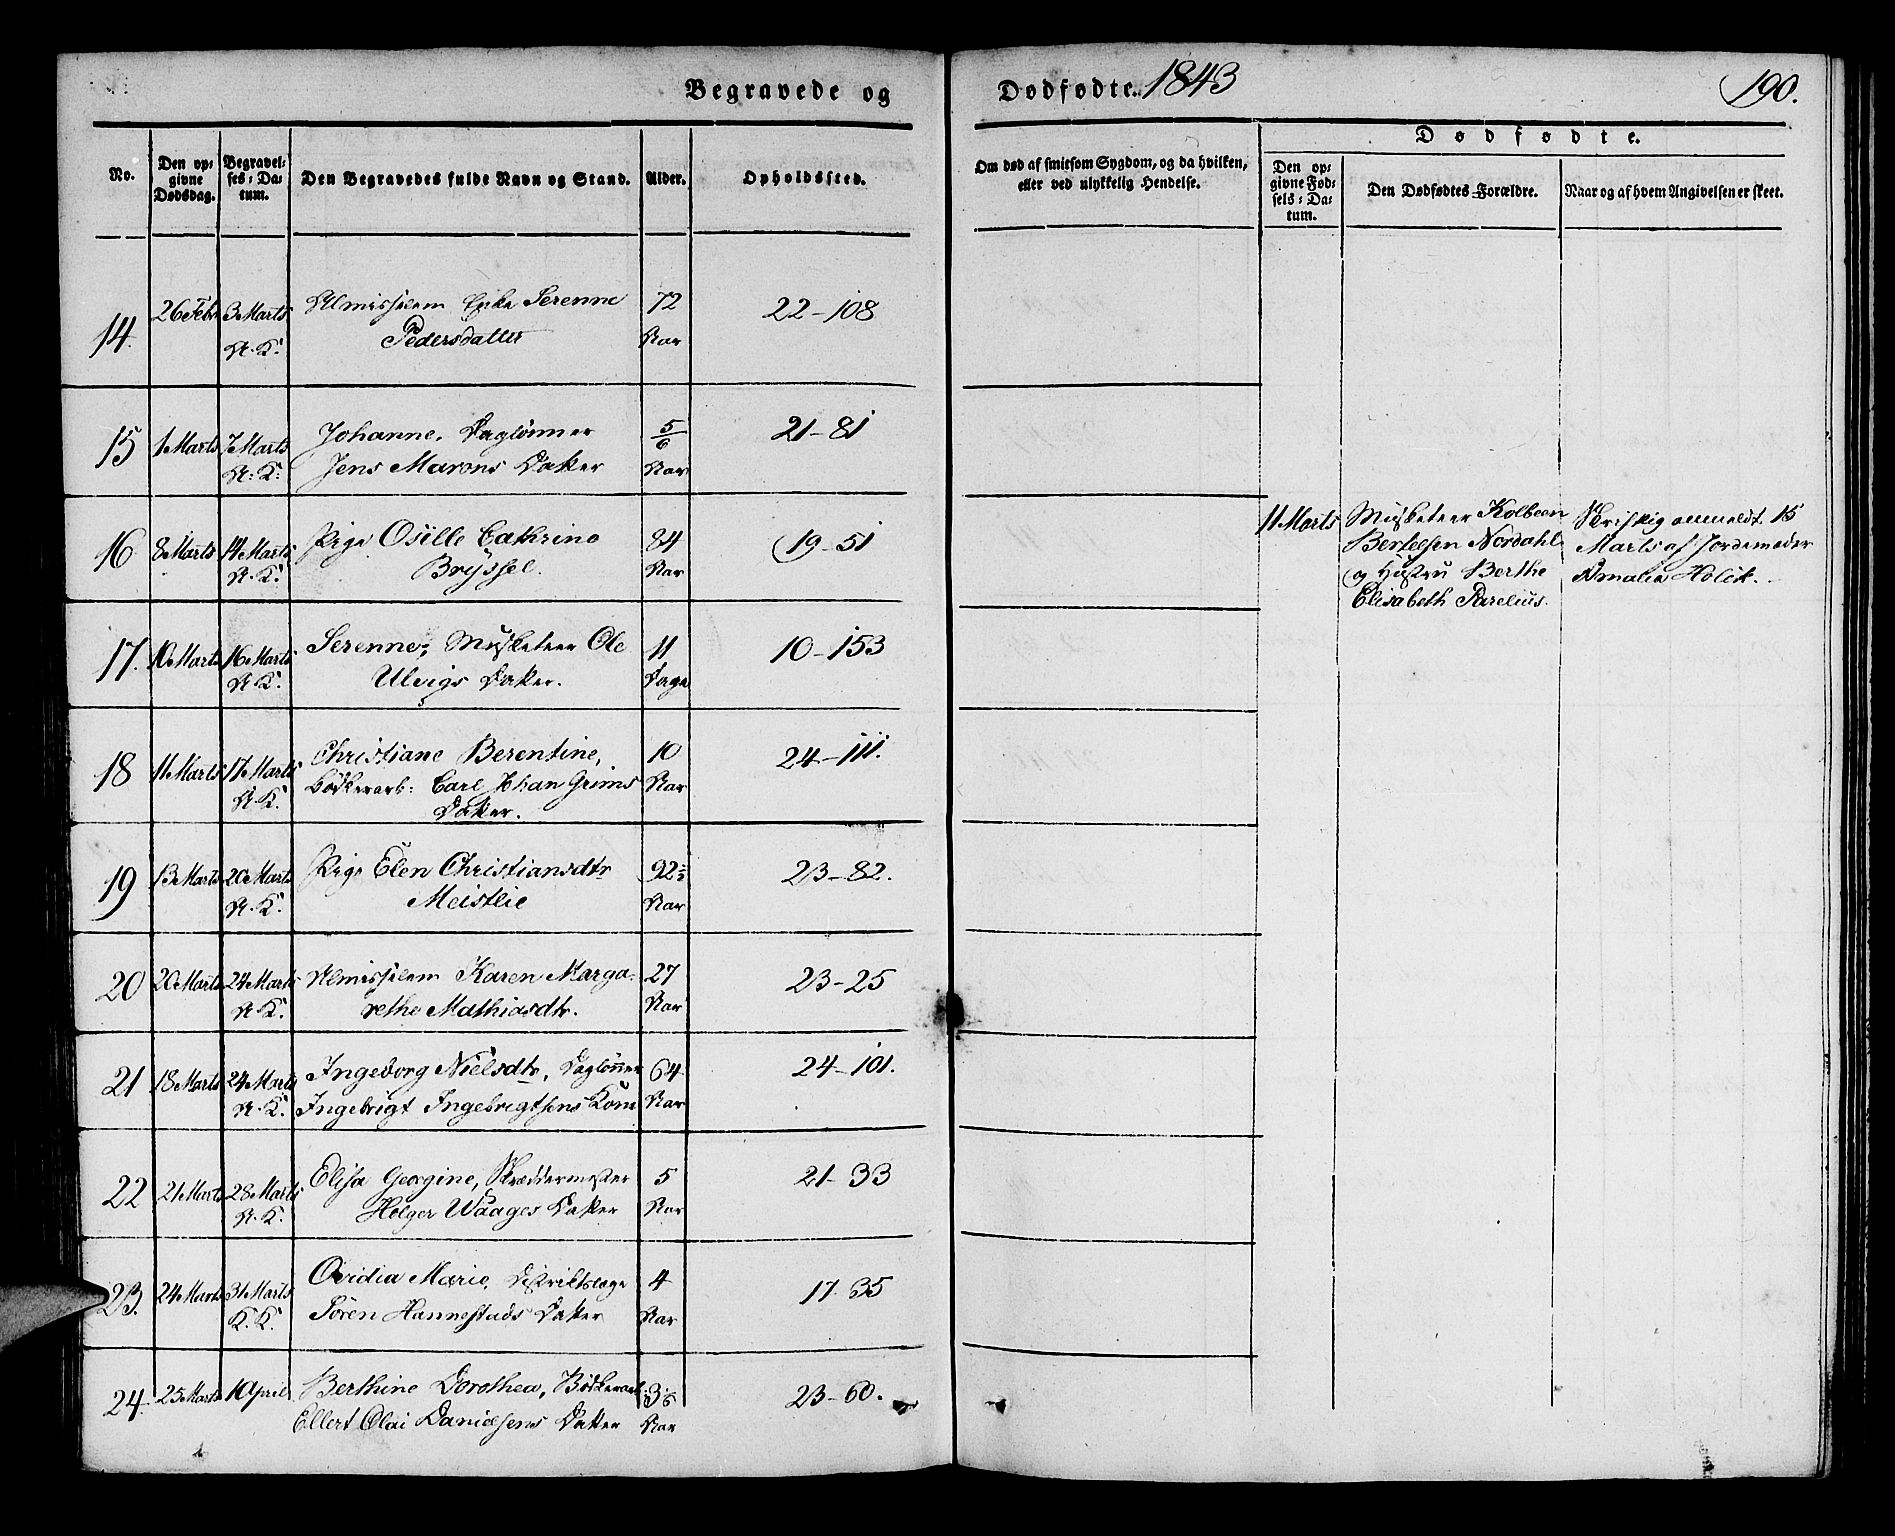 Begravede og Dødfødte. 1843
190.
No.
Den op-
givne
Dødsdag.
Begravel-
ses-Da-
tum.
Den Begravedes fulde Navn og Stand.
Alder.
Opholdssted.
Om død af smitsom Sygdom, og da hvilken,
eller ved ulykkelig Hendelse.
Dødfødte.
Den op-
givne Fød-
sels-Da-
tum.
Den Dødfødtes Forældre.
Naar og af hvem Angivelsen er skeet.
14. 26 Febr 3 Marts Almisselem Enke Serenne 72 22-108
N. K. Pedersdatter Aar
15 1 Marts 7 Marts Johanne, Daglønner 5/6 21-81
N. K. Jens Marons Datter Aar
16 8 Marts 14 Marts Pige Osille Cathrine 84 19-51
N. K. Bryssel. Aar
11 Marts Musketeer Kolbeen
Bertelsen Nordahl
og Hustru Berthe
Elisabeth Parelius.
Skriftlig anmeldt 15
Marts af Jordemoder
Amalia Holck.
17. 10 Marts 16 Marts Serenne, Musketeer Ole 11 10-153
N. K. Ulvigs Datter. Dage
18 11 Marts 17 Marts Christiane Berentine, 10 24-111.
N. K. Bødkerarb: Carl Johan Grims Aar
Datter.
19 13 Marts 20 Marts Pige Elen Christiansdtr 92 23-82.
N. K. Meistlie Aar
20 20 Marts 24 Marts Almisselem Karen Marga- 27 23-25
N. K. rethe Mathiasdtr. Aar
21 18 Marts 24 Marts Ingeborg Nielsdtr, Daglønner 64 24-101.
N. K. Ingebrigt Ingebrigtsens Kone Aar
22 21 Marts 28 Marts Elisa Georgine, Skræddermester 5 21-33
N. K. Holger Waages Datter Aar
23. 24 Marts 31 Marts Ovidia Marie, Distriktslæge 4 17-35
K. K. Sören Hannestads Datter Aar
24. 25 Marts 1 April Berthine Dorothea, Bödkerarb: 23-60.
Ellert Olai Danielsens Datter Aar